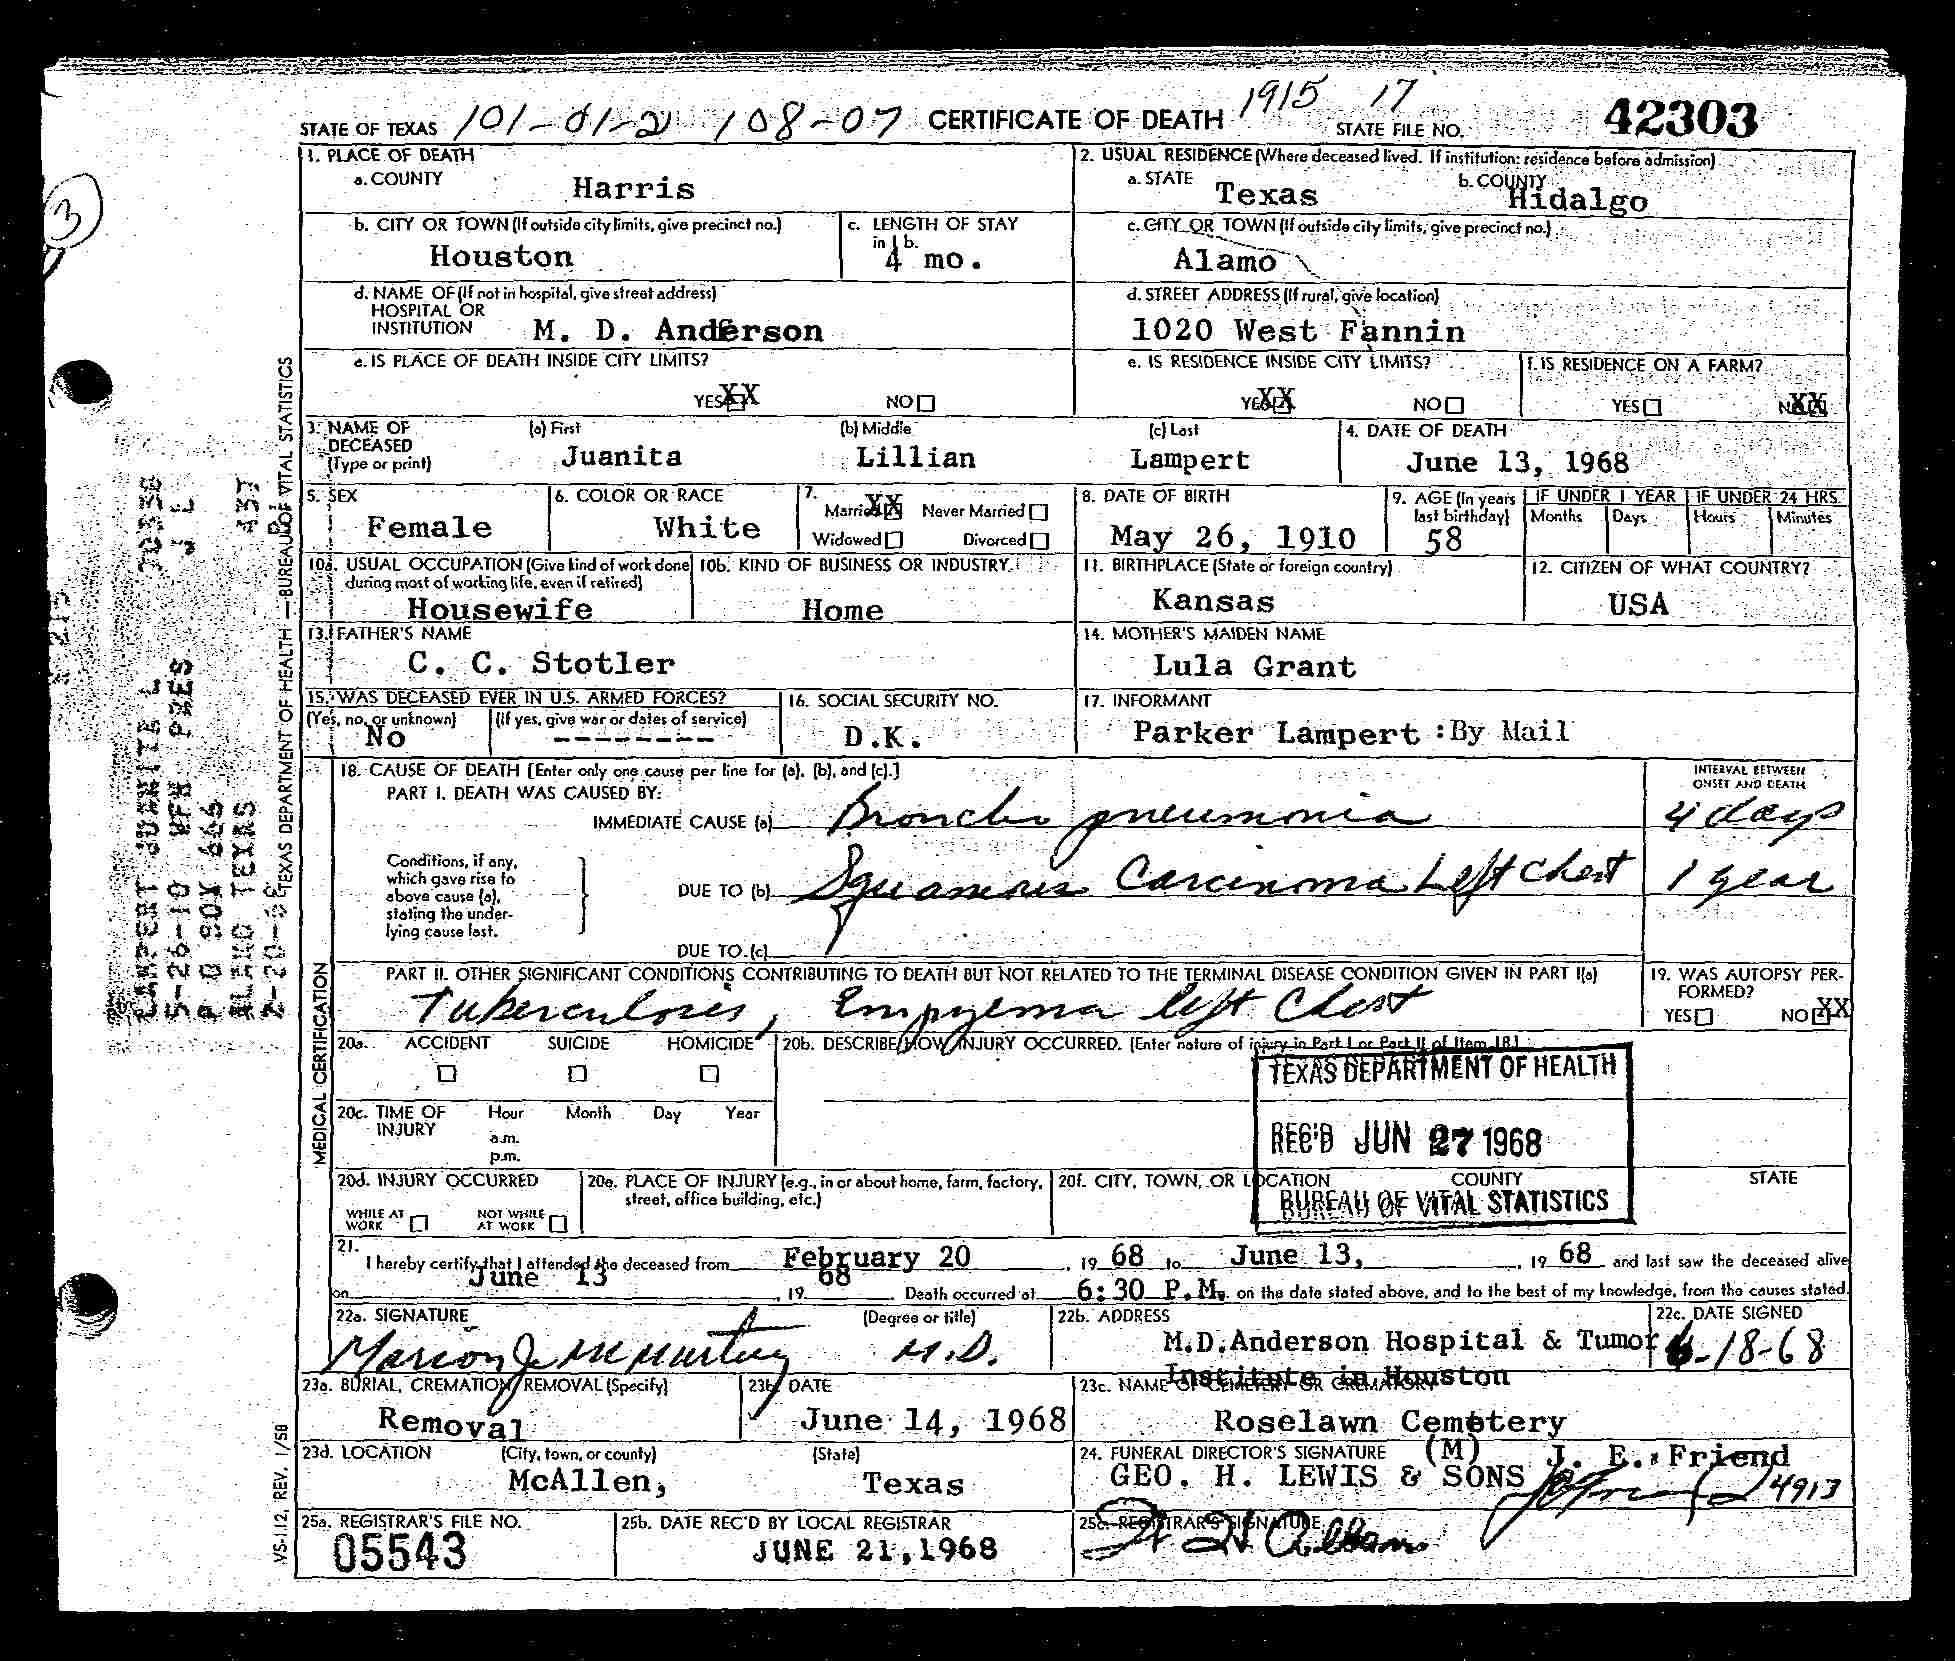 STATE OF TEXAS 101-01-2 108-07 CERTIFICATE OF DEATH 1915 17 STATE FILE NO. 42303
3
1. PLACE OF DEATH
a. COUNTY Harris
2. USUAL RESIDENCE (Where deceased lived. If institution: residence before admission)
a. STATE Texas b. COUNTY Hidalgo
b. CITY OR TOWN (If outside city limits, give precinct no.) Houston
c. LENGTH OF STAY in 1 b. 4 mo.
c. CITY OR TOWN (If outside city limits, give precinct no.) Alamo
d. NAME OF (If not in hospital, give street address)
HOSPITAL OR
INSTITUTION M. D. Anderson
d. STREET ADDRESS (If rural, give location)
1020 West Fannin
e. IS PLACE OF DEATH INSIDE CITY LIMITS?
YES XX NO
e. IS RESIDENCE INSIDE CITY LIMITS?
YES XX NO
f. IS RESIDENCE ON A FARM?
YES NO XX
3. NAME OF DECEASED (Type or print)
(a) First Juanita (b) Middle Lillian (c) Last Lampert
4. DATE OF DEATH
June 13, 1968
5. SEX
Female
6. COLOR OR RACE
White
7. Married XX Never Married
Widowed Divorced
8. DATE OF BIRTH
May 26, 1910
9. AGE (In years last birthday)
58
IF UNDER 1 YEAR IF UNDER 24 HRS.
Months Days Hours Minutes
10a. USUAL OCCUPATION (Give kind of work done during most of working life, even if retired)
Housewife
10b. KIND OF BUSINESS OR INDUSTRY
Home
11. BIRTHPLACE (State or foreign country)
Kansas
12. CITIZEN OF WHAT COUNTRY?
USA
13. FATHER'S NAME
C. C. Stotler
14. MOTHER'S MAIDEN NAME
Lula Grant
15. WAS DECEASED EVER IN U.S. ARMED FORCES?
(Yes, no, or unknown) (If yes, give war or dates of service)
No --------
16. SOCIAL SECURITY NO.
D.K.
17. INFORMANT
Parker Lampert :By Mail
18. CAUSE OF DEATH [Enter only one cause per line for (a), (b), and (c).]
PART I. DEATH WAS CAUSED BY:
INTERVAL BETWEEN ONSET AND DEATH
IMMEDIATE CAUSE (a) Broncho pneumonia 4 days
Conditions, if any, which gave rise to above cause (a), stating the underlying cause last.
DUE TO (b) Squamous Carcinoma Left Chest 1 year
DUE TO (c)
PART II. OTHER SIGNIFICANT CONDITIONS CONTRIBUTING TO DEATH BUT NOT RELATED TO THE TERMINAL DISEASE CONDITION GIVEN IN PART I(a)
Tuberculosis, Empyema left Chest
19. WAS AUTOPSY PERFORMED?
YES NO XX
20a. ACCIDENT SUICIDE HOMICIDE
20b. DESCRIBE HOW INJURY OCCURRED. (Enter nature of injury in Part I or Part II of Item 18.)
TEXAS DEPARTMENT OF HEALTH
REC'D JUN 27 1968
BUREAU OF VITAL STATISTICS
20c. TIME OF INJURY Hour Month Day Year
a.m.
p.m.
20d. INJURY OCCURRED
WHILE AT WORK NOT WHILE AT WORK
20e. PLACE OF INJURY (e.g., in or about home, farm, factory, street, office building, etc.)
20f. CITY, TOWN, OR LOCATION COUNTY STATE
21. I hereby certify that I attended the deceased from February 20, 19 68 to June 13, , 19 68 and last saw the deceased alive
on June 13 , 19 68 . Death occurred at 6:30 P.M. on the date stated above, and to the best of my knowledge, from the causes stated.
22a. SIGNATURE (Degree or title)
Marion J. McMurtrey M.D.
22b. ADDRESS
M.D.Anderson Hospital & Tumor
Institute in Houston
22c. DATE SIGNED
6-18-68
23a. BURIAL, CREMATION, REMOVAL (Specify)
Removal
23b. DATE
June 14, 1968
23c. NAME OF CEMETERY OR CREMATORY
Roselawn Cemetery
23d. LOCATION (City, town, or county) (State)
McAllen, Texas
24. FUNERAL DIRECTOR'S SIGNATURE (M) J. E. Friend
GEO. H. LEWIS & SONS 4913
25a. REGISTRAR'S FILE NO.
05543
25b. DATE REC'D BY LOCAL REGISTRAR
JUNE 21, 1968
25c. REGISTRAR'S SIGNATURE
MEDICAL CERTIFICATION
VS-112, REV. 1/58
TEXAS DEPARTMENT OF HEALTH — BUREAU OF VITAL STATISTICS
LAMPERT JUANITE L
5-26-10 WFM PRES
P O BOX 666
ALAMO TEXAS
2-20-68